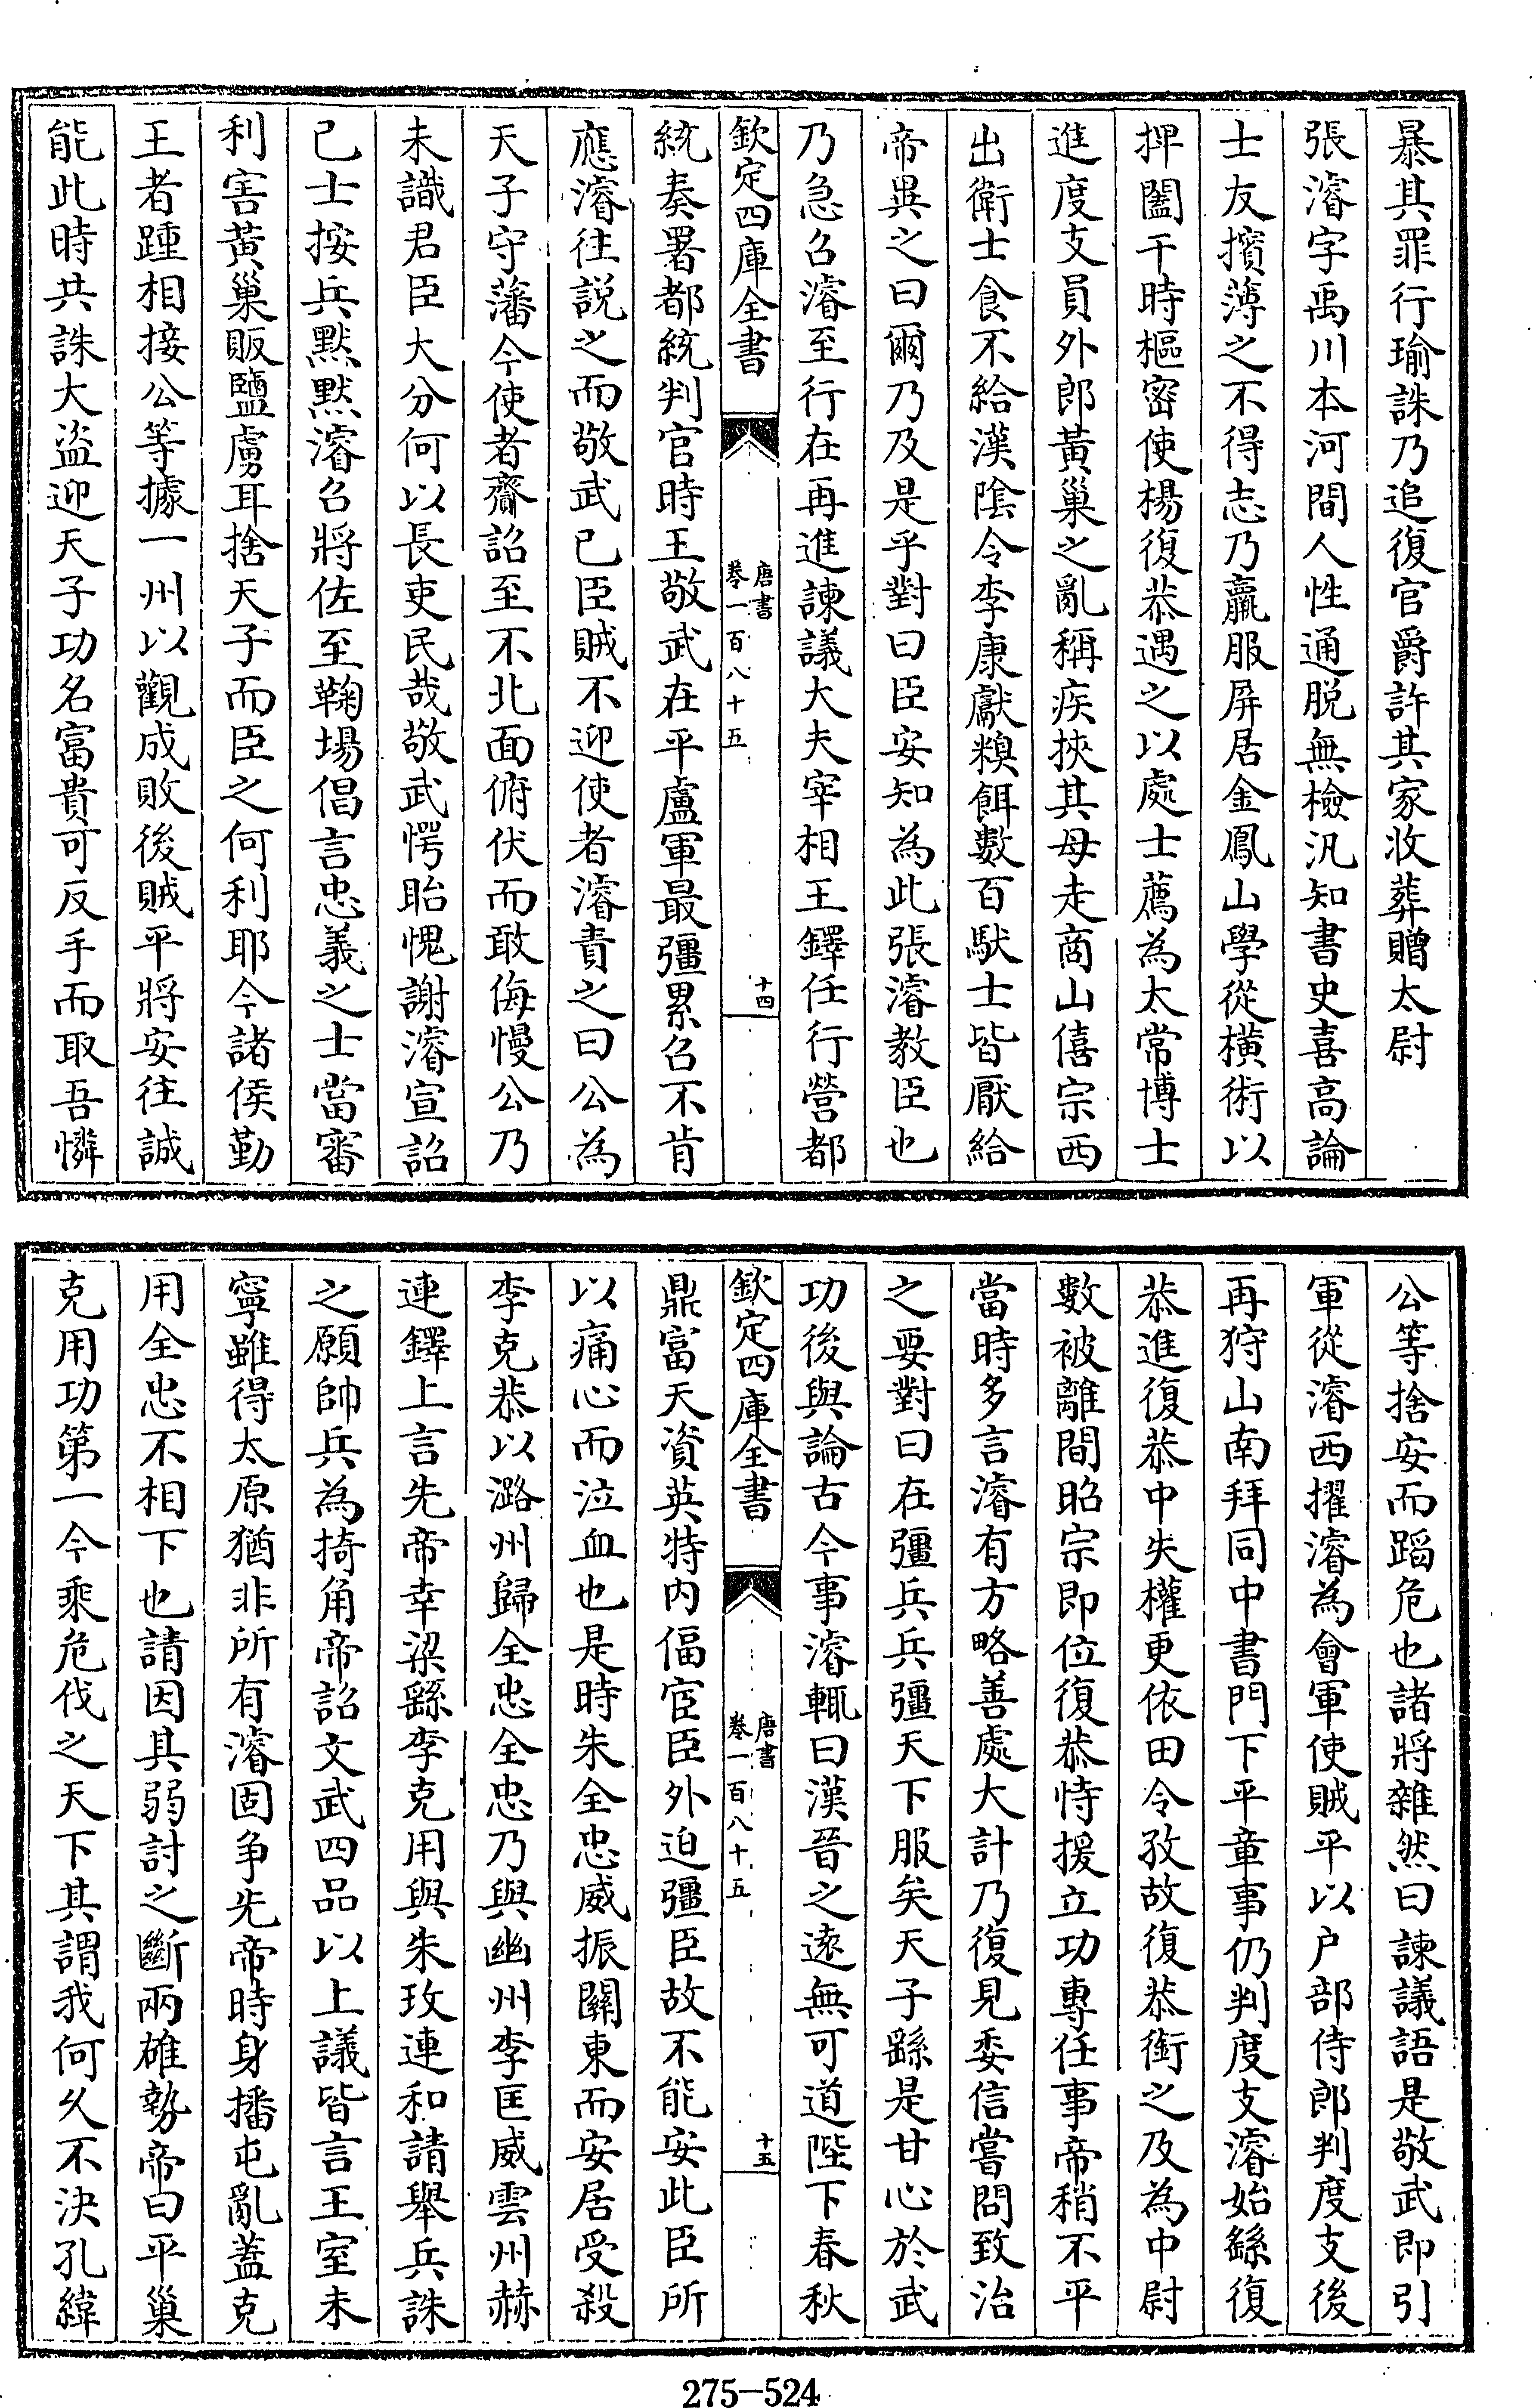 暴其罪行瑜誅乃追復官爵許其家收葬贈太尉
張濬字禹川本河間人性通脱無檢汎知書史喜高論
士友擯薄之不得志乃羸服屏居金鳳山學從橫術以
捭闔干時樞密使楊復恭遇之以處士薦為太常博士
進度支員外郎黃巢之亂稱疾挾其母走商山僖宗西
出衛士食不給漢陰令李康獻糗餌數百馱士皆厭給
帝異之曰爾乃及是乎對曰臣安知為此張濬教臣也
乃急召濬至行在再進諫議大夫宰相王鐸任行營都
欽定四庫全書
唐書
卷一百八十五
十四
統奏署都統判官時王敬武在平盧軍最彊累召不肯
應濬往説之而敬武已臣賊不迎使者濬責之曰公為
天子守藩今使者齎詔至不北面俯伏而敢侮慢公乃
未識君臣大分何以長吏民哉敬武愕眙愧謝濬宣詔
已士按兵默默濬召將佐至鞠場倡言忠義之士當審
利害黄巢販鹽虜耳捨天子而臣之何利耶今諸侯勤
王者踵相接公等據一州以觀成敗後賊平將安往誠
能此時共誅大盜迎天子功名富貴可反手而取吾憐
公等捨安而蹈危也諸將雜然曰諫議語是敬武即引
軍從濬西擢濬為會軍使賊平以户部侍郎判度支後
再狩山南拜同中書門下平章事仍判度支濬始繇復
恭進復恭中失權更依田令孜故復恭銜之及為中尉
數被離間昭宗即位復恭恃援立功專任事帝稍不平
當時多言濬有方略善處大計乃復見委信嘗問致治
之要對曰在彊兵兵彊天下服矣天子繇是甘心於武
功後與論古今事濬輒曰漢晉之遠無可道陛下春秋
欽定四庫全書
唐書
卷一百八十五
十五
鼎富天資英特内偪宦臣外迫彊臣故不能安此臣所
以痛心而泣血也是時朱全忠威振關東而安居受殺
李克恭以潞州歸全忠全忠乃與幽州李匡威雲州赫
連鐸上言先帝幸梁繇李克用與朱玫連和請舉兵誅
之願帥兵為掎角帝詔文武四品以上議皆言王室未
寧雖得太原猶非所有濬固争先帝時身播屯亂蓋克
用全忠不相下也請因其弱討之斷兩雄勢帝曰平巢
克用功第一今乘危伐之天下其謂我何久不決孔緯
275-524